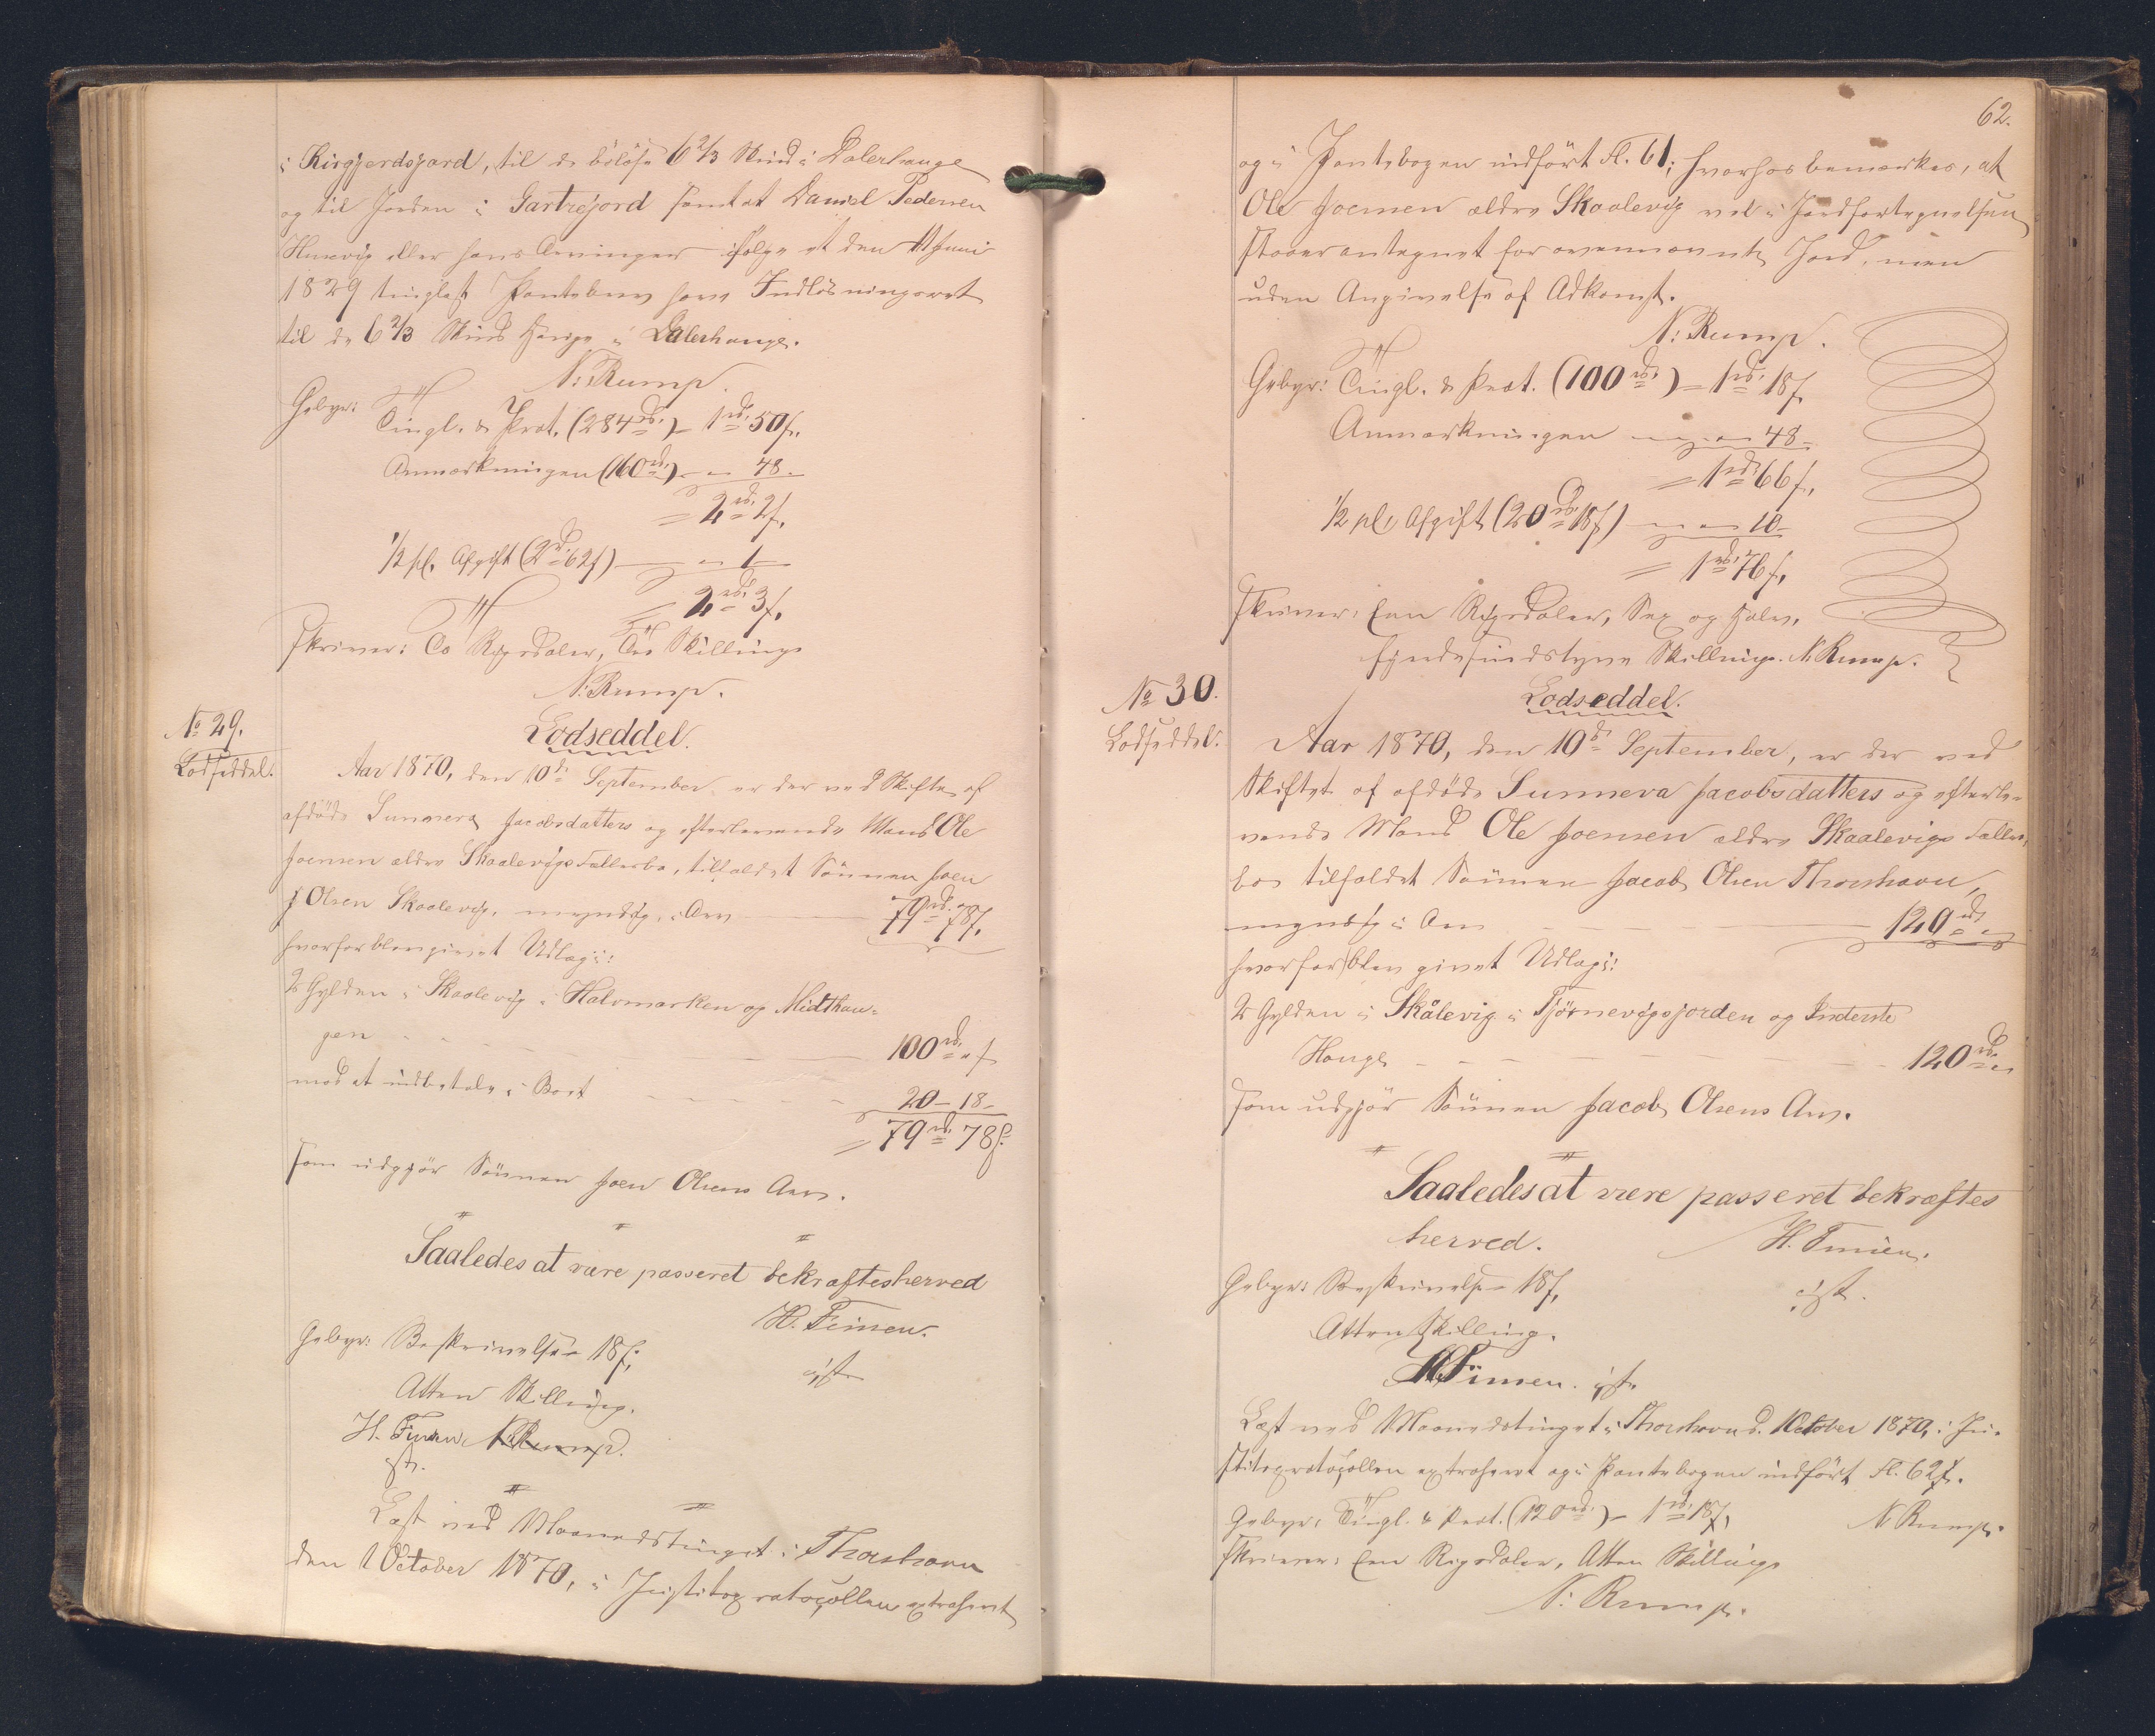 i Kirgjerdsjord, til de bøløse 6 2/3 Skind i Dalerhauge
og til Jorden i Gartrejord samt at Daniel Pedersen
Husevig eller hans Arvinger ifølge et den 11 Juni
1829 tinglæst Pantebrev have Indløsningsret
til de 6 2/3 Skind Hauge i Dalerhauge.
N: Rump.
Gebyr: Tingl. & Prot. (284 rd.) = 1 rd. 50 s.
Anmærkningen (160 rd.) - " 48 -
= 2 rd. 2 s.
1/2 pCt. Afgift (2 rd. 62 s) — " 1 —
= 2 rd. 3 s.
skriver: To Rigsdaler, Tre Skilling
N: Rump.
No 29.
Lodseddel.
Lodseddel.
Aar 1870, den 10de September, er der ved Skifte af
afdøde Sunneva Jacobsdatters og efterlevende Mand Ole
Joensen ældre Skaalevigs Fællesbo, tilfaldet Sønnen Joen
Olsen Skaalevig, myndig, i Arv — 79 rd. 78 s.
hvorfor blev givet Udlæg i:
2 Gylden i Skaalevig i Halvmarken og Midthau-
gen — 100 rd. " s
mod at indbetale i Boet — 20 - 18 -
= 79 rd. 78 s.
som udgjør Sønnen Joen Olsens Arv.
Saaledes at være passeret bekræftes herved
H. Finsen.
cst.
Gebyr: Beskrivelse = 18 s,
Atten Skilling.
H. Finsen N. Rump.
cst.
Læst ved Maanedstinget i Thorshavn
den 1 October 1870, i Justitsprotocollen extraheret
62.
og i Pantebogen indført Fl. 61; hvorhos bemærkes, at
Ole Joensen ældre Skaalevig vel i Jordfortegnelsen
staaer antegnet for ovennævnte Jord, men
uden Angivelse af Adkomst.
N: Rump.
Gebyr: Tingl. & Prot. (100 rd.) = 1 rd. 18 s.
Anmærkningen — " 48 -
= 1 rd. 66 s.
1/2 pCt. Afgift (20 rd. 18 s) — " 10 -
= 1 rd. 76 s.
skriver: Een Rigsdaler, Sex og halv-
fjerdsindstyve Skilling. N. Rump.
No 30.
Lodseddel.
Lodseddel.
Aar 1870, den 10de September, er der ved
Skiftet af afdøde Sunneva Jacobsdatters og efterle-
vende Mand Ole Joensen ældre Skaalevigs Fælles-
bo tilfaldet Sønnen Jacob Olsen Thorshavn,
myndig i Arv — 120 rd. "
hvorfor blev givet Udlæg i:
2 Gylden i Skålevig i Tjörnevigsjorden og Inderste
Hauge — 120 rd. "
som udgjør Sønnen Jacob Olsens Arv.
Saaledes at være passeret bekræftes
herved. H. Finsen.
cst.
Gebyr: Beskrivelse = 18 s,
Atten Skilling.
H. Finsen. cst.
Læst ved Maanedstinget i Thorshavn d. 1 October 1870, i Ju-
stitsprotocollen extraheret og i Pantebogen indført Fl. 62.
Gebyr: Tingl. & Prot. (120 rd.) = 1 rd. 18 s, N Rump.
skriver: Een Rigsdaler, Atten Skilling
N: Rump.